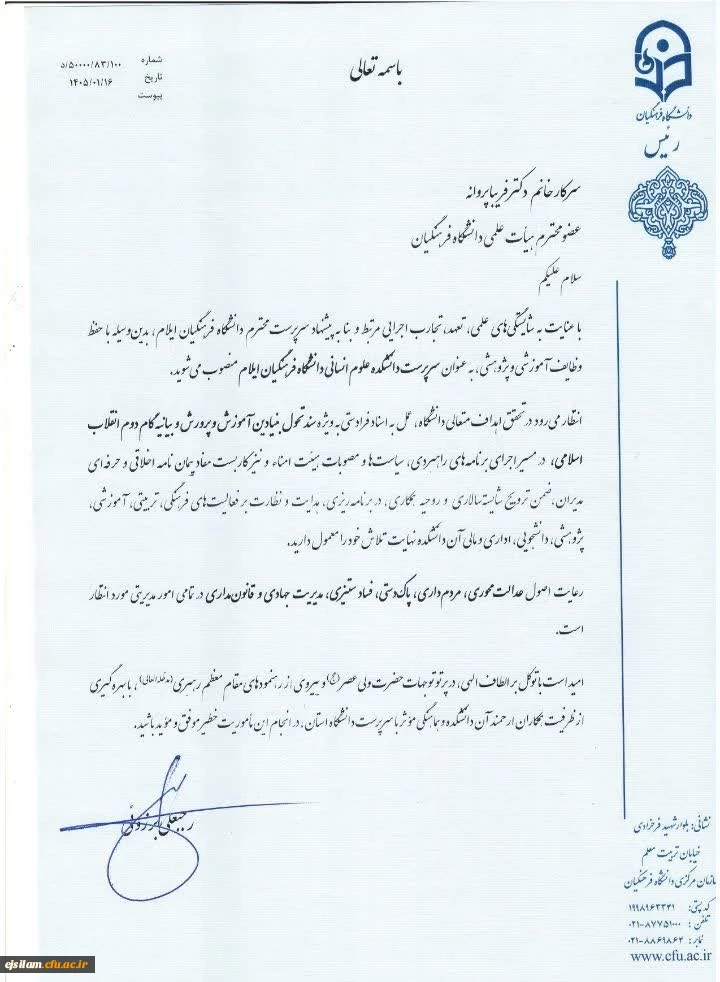 باسمه تعالی
شماره ۵/۵۰۰۰۰/۸۳/۱۰۰
تاریخ ۱۴۰۵/۰۱/۱۶
پیوست
دانشگاه فرهنگیان
رئیس
سرکار خانم دکتر فریبا پروانه
عضو محترم هیأت علمی دانشگاه فرهنگیان
سلام علیکم
با عنایت به شایستگی‌های علمی، تعهد، تجارب اجرایی مرتبط و بنا به پیشنهاد سرپرست محترم دانشگاه فرهنگیان ایلام، بدین‌وسیله با حفظ
وظایف آموزشی و پژوهشی، به عنوان سرپرست دانشکده علوم انسانی دانشگاه فرهنگیان ایلام منصوب می‌شوید.
انتظار می‌رود در تحقق اهداف متعالی دانشگاه، عمل به اسناد فرادستی به ویژه سند تحول بنیادین آموزش و پرورش و بیانیه گام دوم انقلاب
اسلامی، در مسیر اجرای برنامه‌های راهبردی، سیاست‌ها و مصوبات هیئت امناء و نیز کاربست مفاد پیمان نامه اخلاقی و حرفه‌ای
مدیران، ضمن ترویج شایسته‌سالاری و روحیه همکاری، در برنامه‌ریزی، هدایت و نظارت بر فعالیت‌های فرهنگی، تربیتی، آموزشی،
پژوهشی، دانشجویی، اداری و مالی آن دانشکده نهایت تلاش خود را معمول دارید.
رعایت اصول عدالت‌محوری، مردم‌داری، پاک‌دستی، فساد ستیزی، مدیریت جهادی و قانون‌مداری در تمامی امور مدیریتی مورد انتظار
است.
امید است با توکل بر الطاف الهی، در پرتو توجهات حضرت ولی عصر(عج) و پیروی از رهنمودهای مقام معظم رهبری (مدظله‌العالی)، با بهره‌گیری
از ظرفیت همکاران ارجمند آن دانشکده و هماهنگی مؤثر با سرپرست دانشگاه استان، در انجام این مأموریت خطیر موفق و مؤید باشید.
رجبعلی برزوئی
نشانی: بلوار شهید فرحزادی
خیابان تربیت معلم
سازمان مرکزی دانشگاه فرهنگیان
کد پستی: ۱۹۹۸۹۶۳۳۴۱
تلفن: ۰۲۱-۸۷۷۵۱۰۰۰
نمابر: ۰۲۱-۸۸۶۹۸۶۴
www.cfu.ac.ir
ejsilam.cfu.ac.ir